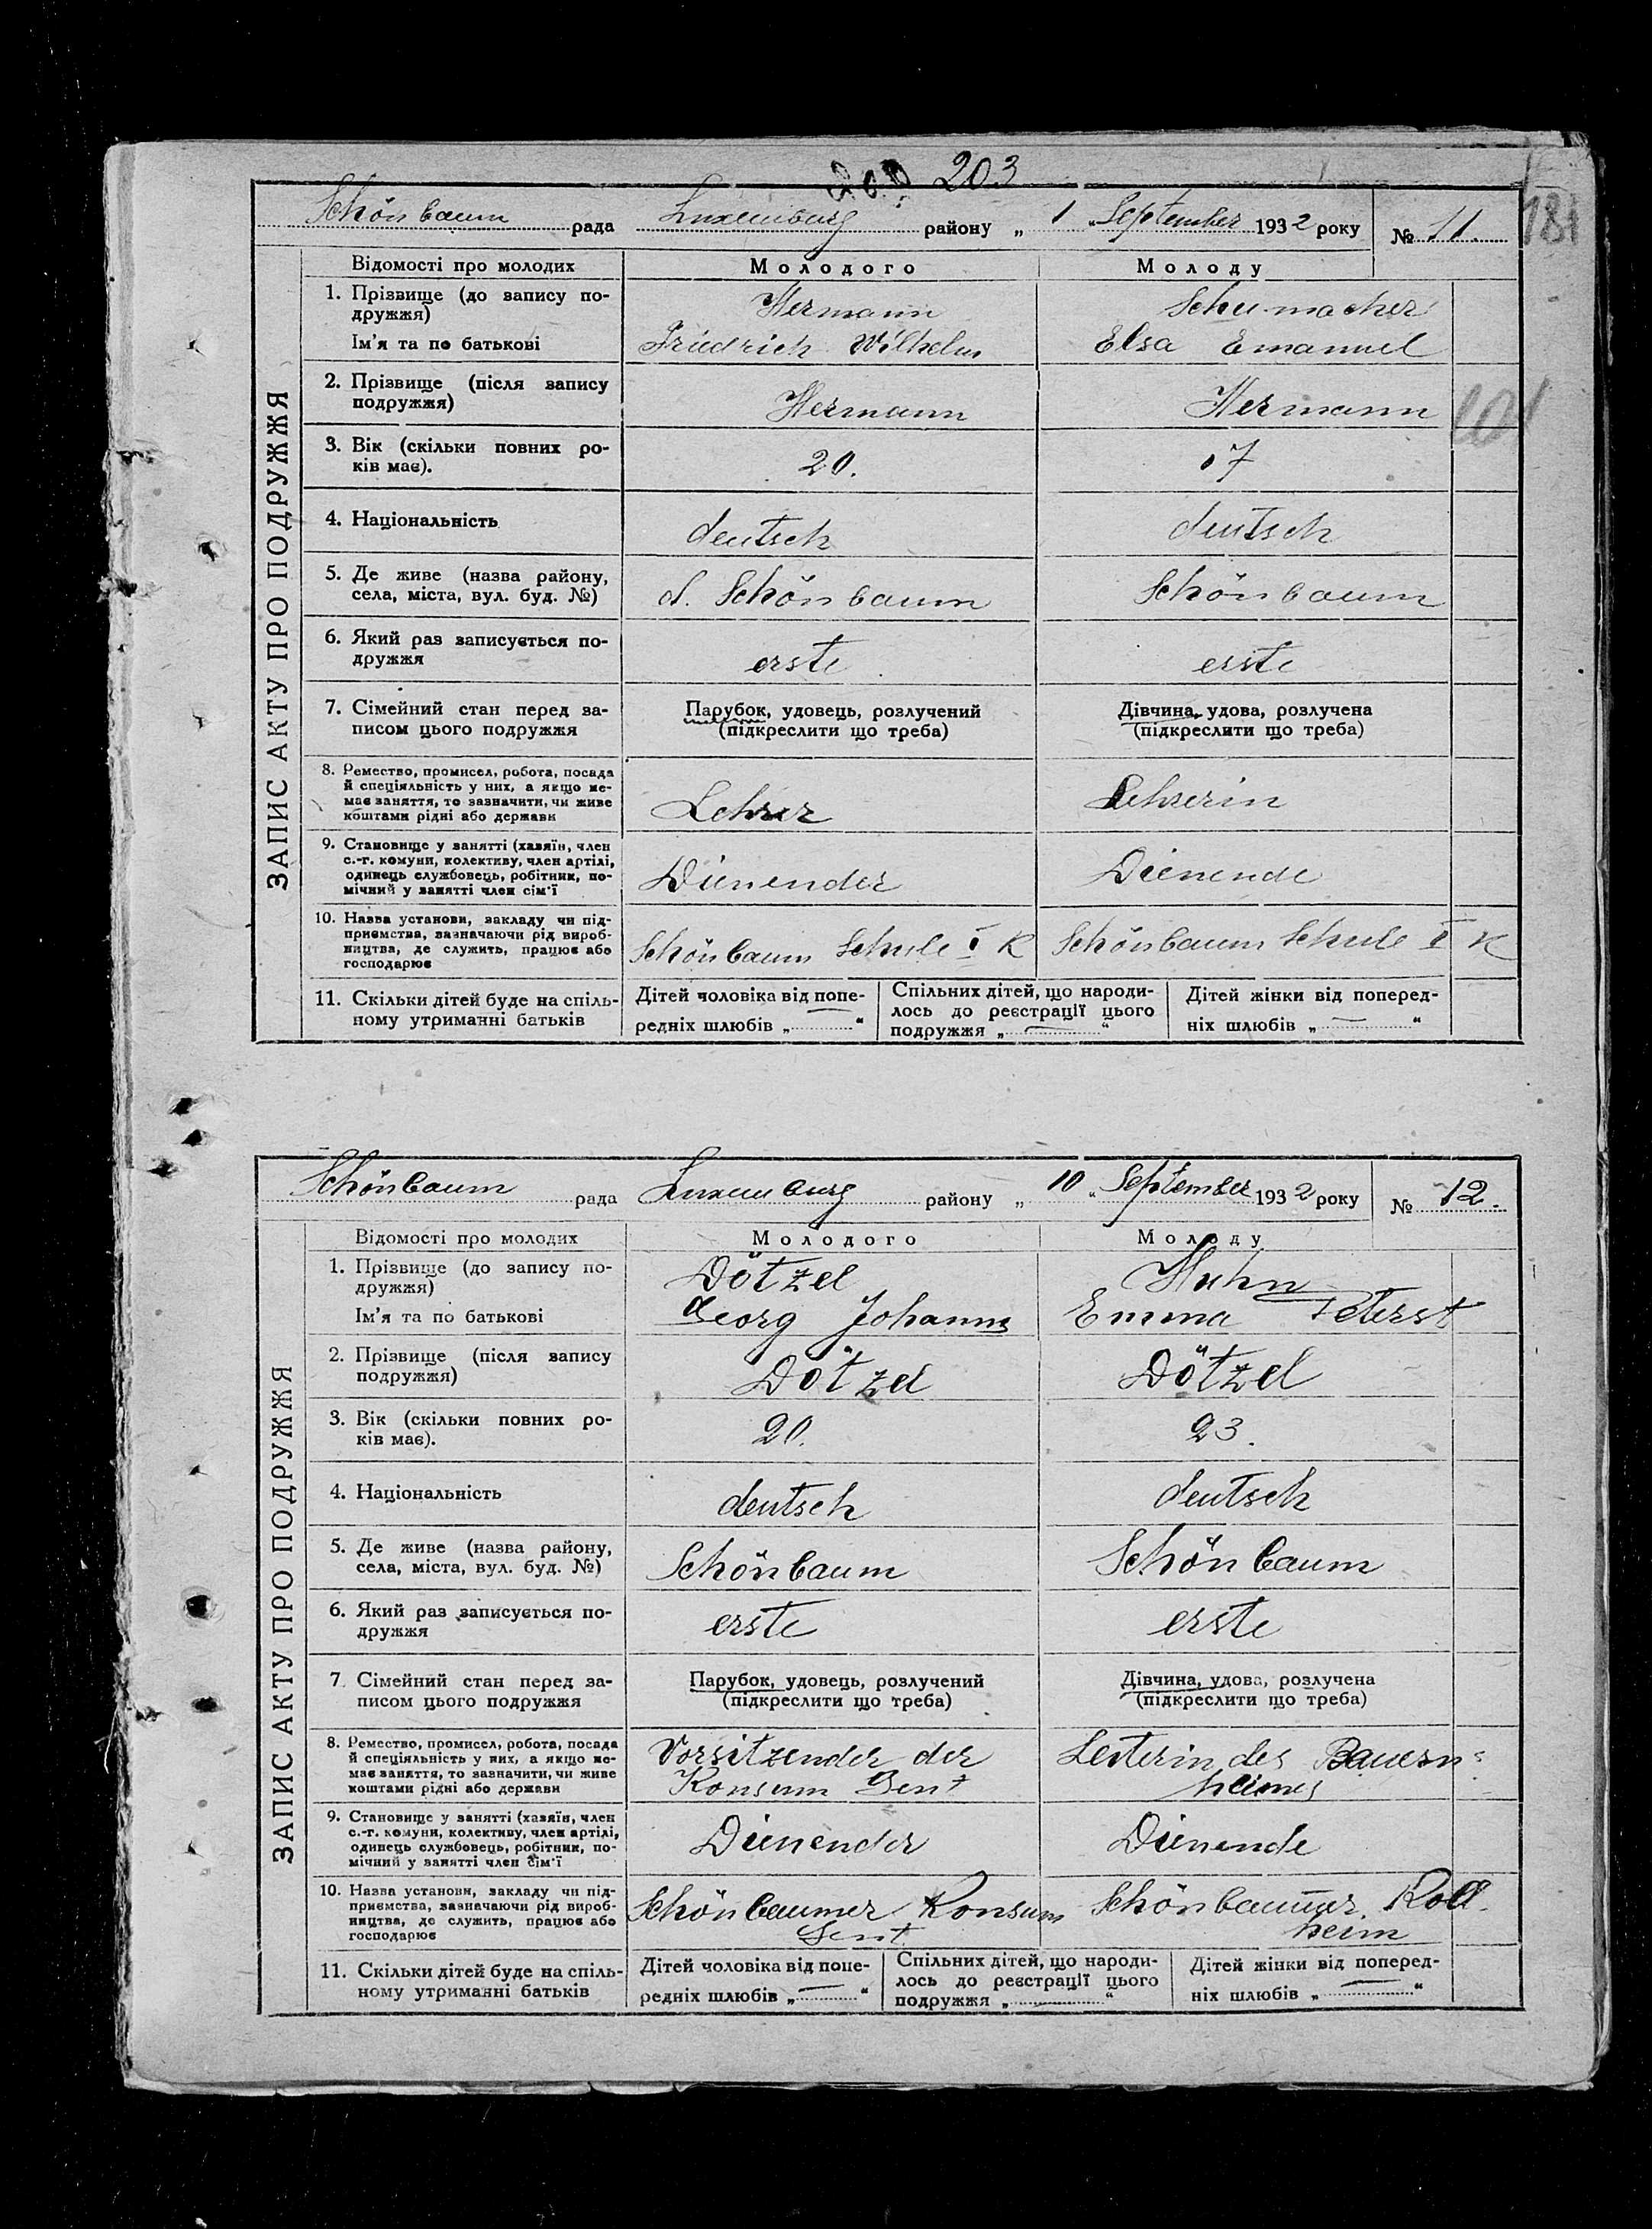 203
181
Schönbaum рада Luxemburg району „ 1 " September 1932 року № 11.
ЗАПИС АКТУ ПРО ПОДРУЖЖЯ
Відомості про молодих Молодого Молоду
1. Прізвище (до запису по-
дружжя) Hermann Schumacher
Ім'я та по батькові Friedrich Wilhelm Elsa Emanuel
2. Прізвище (після запису
подружжя) Hermann Hermann
3. Вік (скільки повних ро-
ків має). 20. 17
4. Національність deutsch deutsch
5. Де живе (назва району,
села, міста, вул. буд. №) d. Schönbaum Schönbaum
6. Який раз записується по-
дружжя erste erste
7. Сімейний стан перед за- Парубок, удовець, розлучений Дівчина, удова, розлучена
писом цього подружжя (підкреслити що треба) (підкреслити що треба)
8. Ремество, промисел, робота, посада
й спеціяльність у них, а якщо не-
має заняття, то зазначити, чи живе
коштами рідні або держави Lehrer Lehrerin
9. Становище у занятті (хазяїн, член
с.-г. комуни, колективу, член артілі,
одинець службовець, робітник, по-
мічний у занятті член сім'ї Dienender Dienende
10. Назва установи, закладу чи під-
приємства, зазначаючи рід вироб-
ництва, де служить, працює або
господарює Schönbaum Schule I K Schönbaum Schule I K
11. Скільки дітей буде на спіль- Дітей чоловіка від попе- Спільних дітей, що народи- Дітей жінки від поперед-
ному утриманні батьків редніх шлюбів „ — “ лось до реєстрації цього ніх шлюбів „ — “
подружжя „ — “
Schönbaum рада Luxemburg району „ 10 " September 1932 року № 12.
ЗАПИС АКТУ ПРО ПОДРУЖЖЯ
Відомості про молодих Молодого Молоду
1. Прізвище (до запису по-
дружжя) Dötzel Huhn
Ім'я та по батькові Georg Johanns Emma Peterst
2. Прізвище (після запису
подружжя) Dötzel Dötzel
3. Вік (скільки повних ро-
ків має). 20. 23.
4. Національність deutsch deutsch
5. Де живе (назва району,
села, міста, вул. буд. №) Schönbaum Schönbaum
6. Який раз записується по-
дружжя erste erste
7. Сімейний стан перед за- Парубок, удовець, розлучений Дівчина, удова, розлучена
писом цього подружжя (підкреслити що треба) (підкреслити що треба)
8. Ремество, промисел, робота, посада
й спеціяльність у них, а якщо не-
має заняття, то зазначити, чи живе
коштами рідні або держави Vorsitzender der Leiterin des Bauern-
Konsum heimes
9. Становище у занятті (хазяїн, член
с.-г. комуни, колективу, член артілі,
одинець службовець, робітник, по-
мічний у занятті член сім'ї Dienender Dienende
10. Назва установи, закладу чи під-
приємства, зазначаючи рід вироб-
ництва, де служить, працює або
господарює Schönbaumer Konsum Schönbaumer Koll-
heim
11. Скільки дітей буде на спіль- Дітей чоловіка від попе- Спільних дітей, що народи- Дітей жінки від поперед-
ному утриманні батьків редніх шлюбів „ — “ лось до реєстрації цього ніх шлюбів „ — “
подружжя „ “